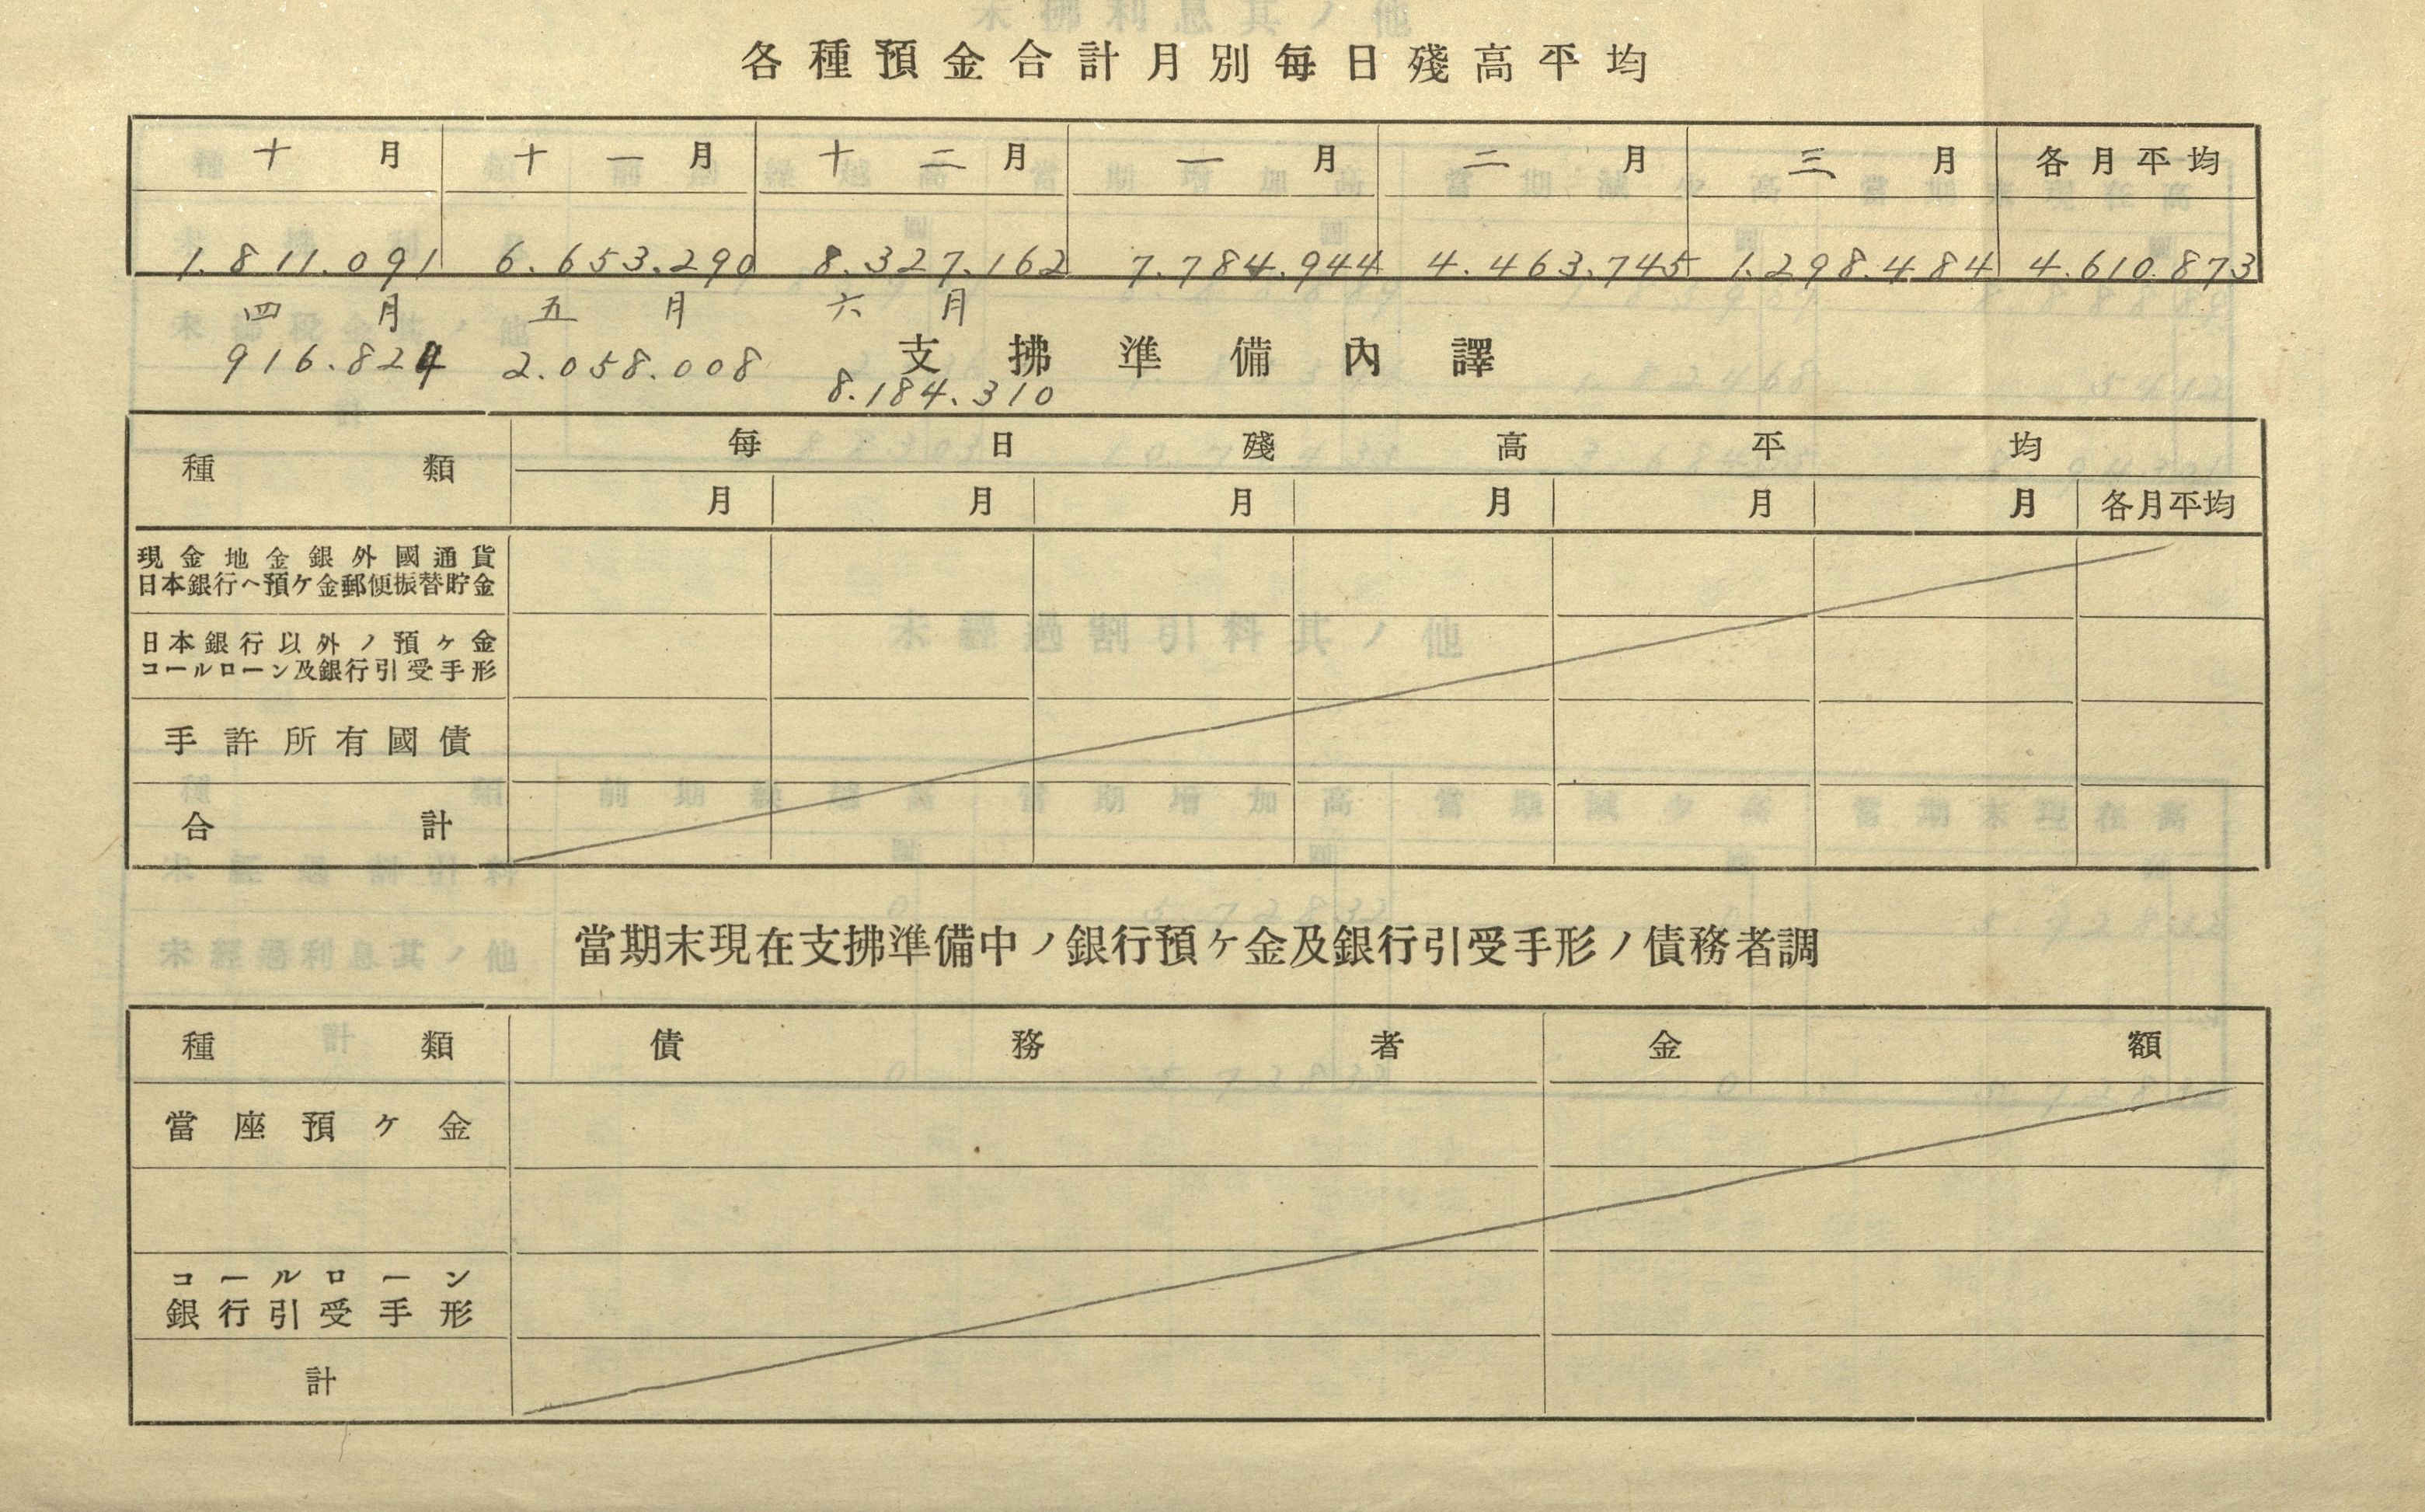 各種預金合計月別每日殘高平均
十月 十一月 十二月 一月 二月 三月 各月平均
1.811.091 6.653.290 8.327.162 7.784.944 4.463.745 1.298.484 4.610.873
四月 五月 六月
916.824 2.058.008 8.184.310
支拂準備內譯
種類 每日殘高平均
月 月 月 月 月 月 各月平均
現金地金銀外國通貨
日本銀行ヘ預ケ金郵便振替貯金
日本銀行以外ノ預ヶ金
コールローン及銀行引受手形
手許所有國債
合計
當期末現在支拂準備中ノ銀行預ヶ金及銀行引受手形ノ債務者調
種類 債務者 金額
當座預ヶ金
コールローン
銀行引受手形
計